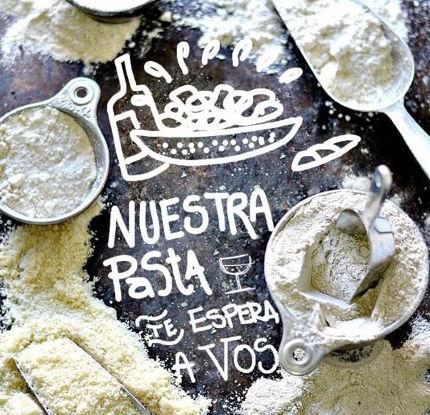 NUESTRA
PaStA
TE ESPERA
A VOS